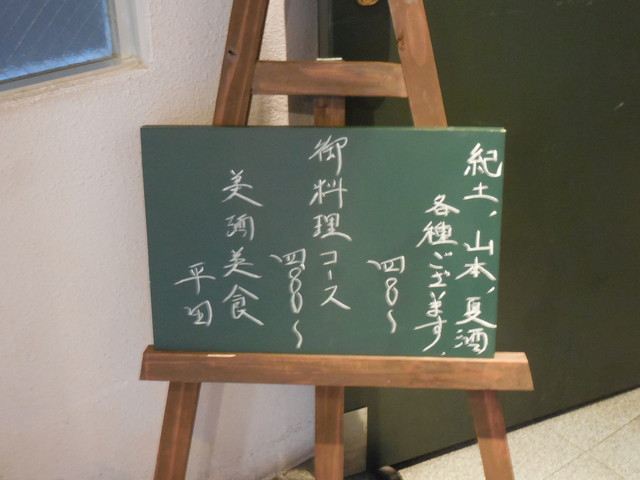 紀土、山本、夏酒
各種ございます。
四〇〇〜
御料理コース
四〇〇〇〜
美酒美食
平田